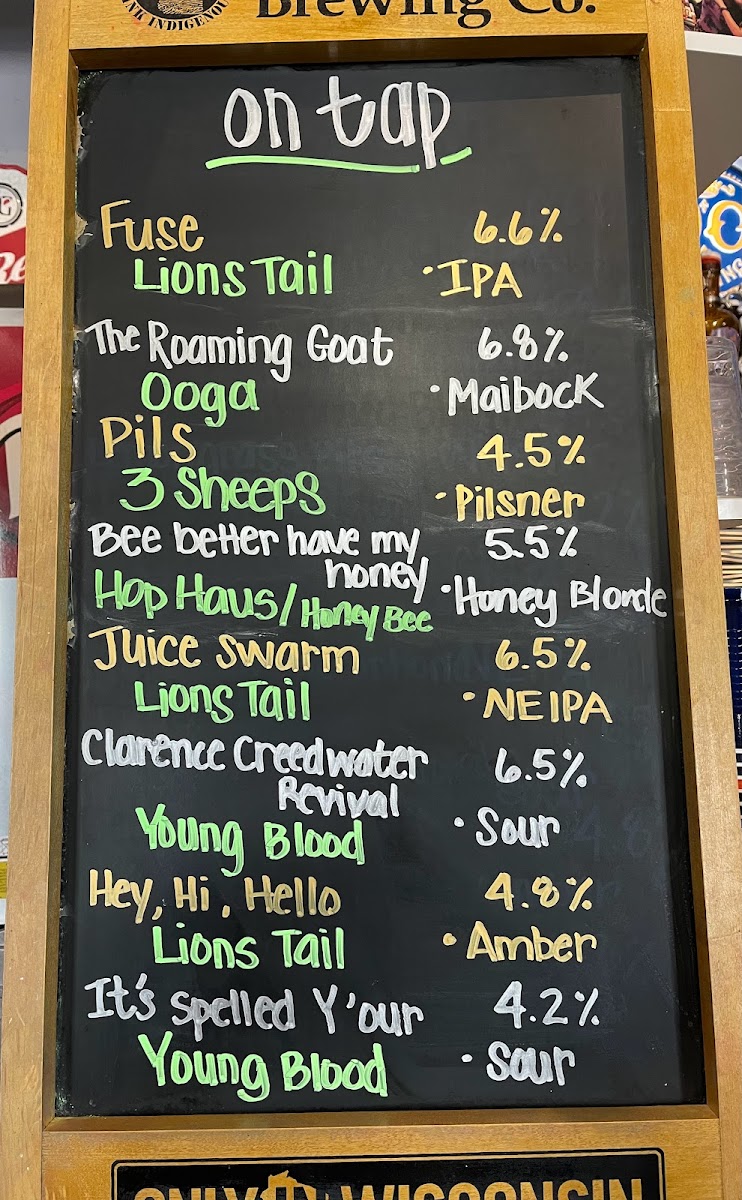 Brewing Co.
on tap
Fuse 6.6%
Lions Tail ·IPA
The Roaming Goat 6.8%
Ooga ·Maibock
Pils 4.5%
3 Sheeps ·Pilsner
Bee better have my 5.5%
honey
Hop Haus/Honey Bee ·Honey Blonde
Juice Swarm 6.5%
Lions Tail ·NEIPA
Clarence Creedwater 6.5%
Revival
Young Blood ·Sour
Hey, Hi, Hello 4.8%
Lions Tail ·Amber
It's spelled Y'our 4.2%
Young Blood ·Sour
ONLY IN WISCONSIN